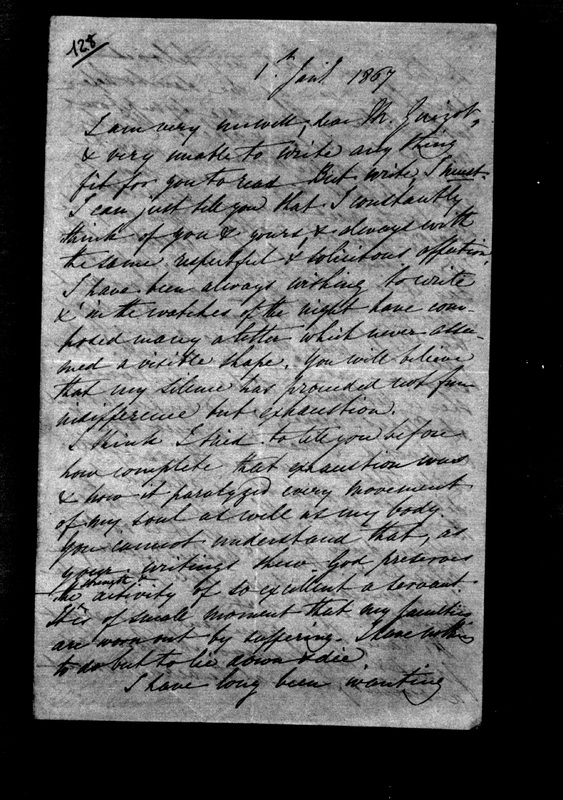 128
1st Jany. 1867
I am very unwell, dear Mr. Guizot,
& very unable to write any thing
fit for you to read. But write I must.
I can just tell you that I constantly
think of you & yours, & always with
the same respectful & solicitous affection.
I have been always wishing to write
& in the watches of the night have com-
posed many a letter which never assu-
med a visible shape. You will believe
that my silence has proceeded not from
indifference but exhaustion.
I think I tried to tell you before
how complete that exhaustion was
& how it paralyzed every movement
of my soul as well as my body.
You cannot understand that, as
your writings shew God preserves
strength &
the activity of so excellent a servant.
It is of small moment that my faculties
are worn out by suffering. I have nothing
to do but to lie down & die.
I have long been wanting